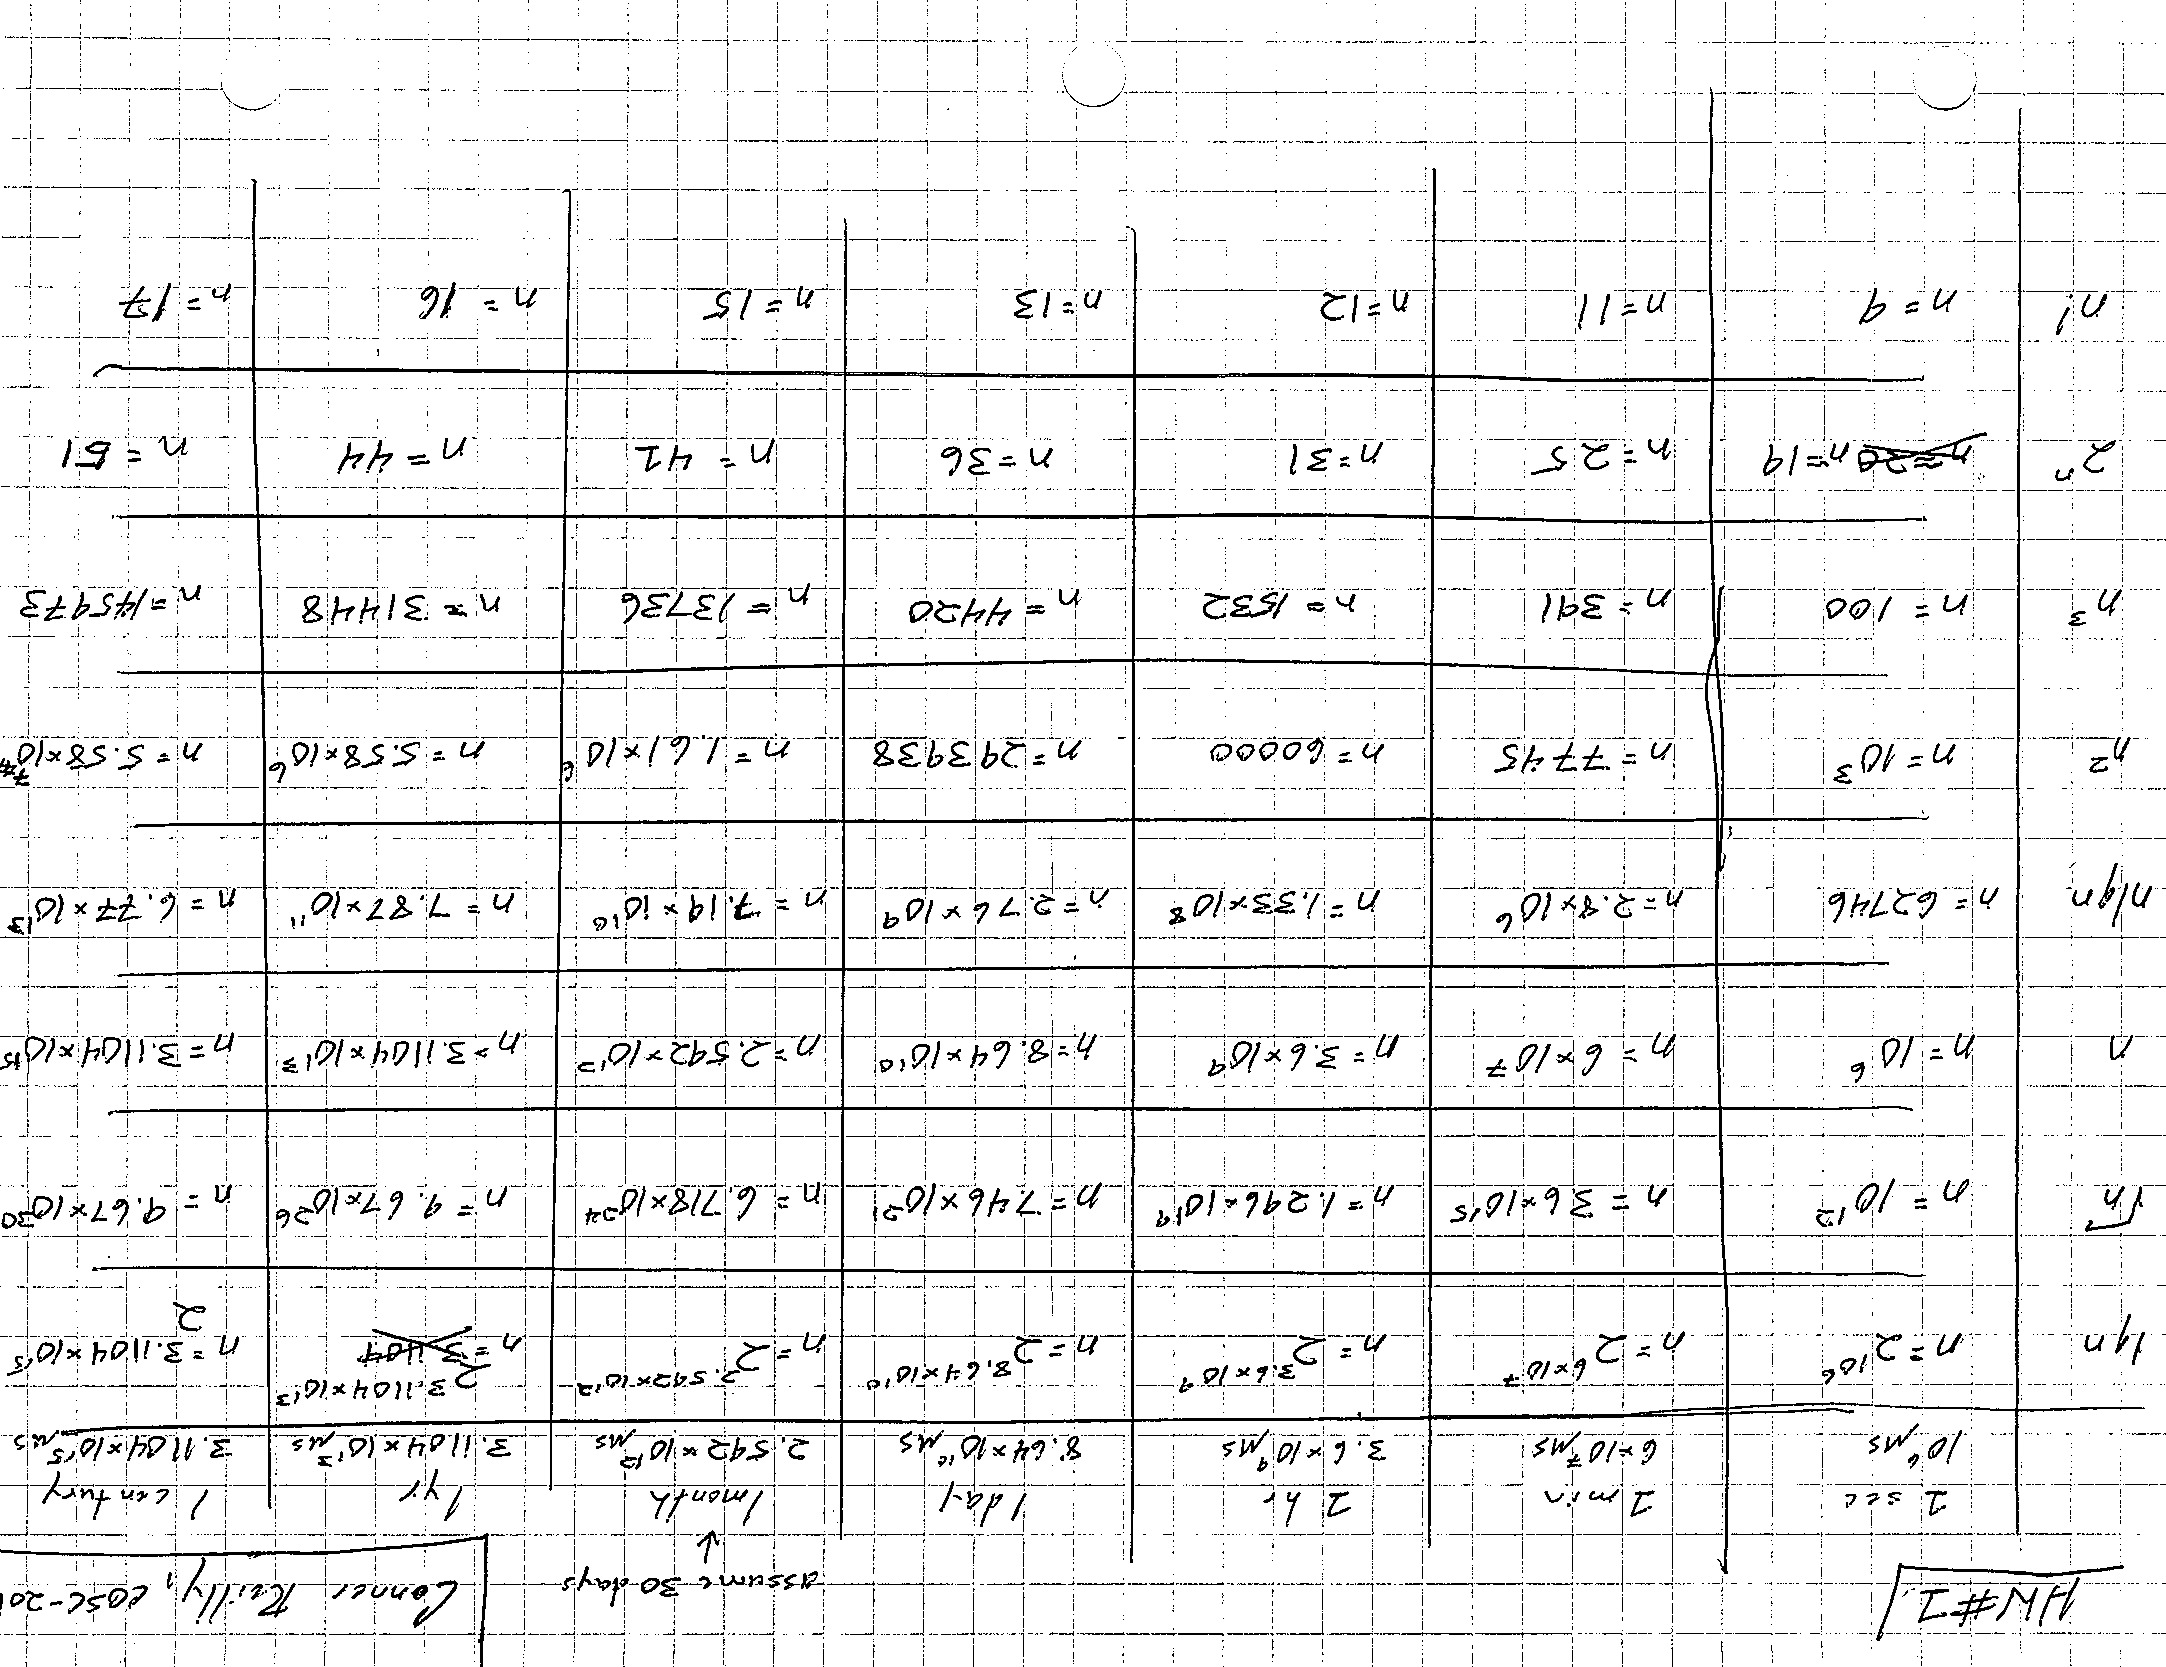 HW #1
assume 30 days
↓
Conner Reilly, COSC-201
1 sec 1 min 1 hr 1 day 1 month 1 yr 1 century
10⁶ μs 6×10⁷ μs 3.6×10⁹ μs 8.64×10¹⁰ μs 2.592×10¹² μs 3.1104×10¹³ μs 3.1104×10¹⁵ μs
lg n n=2^10⁶ n=2^6×10⁷ n=2^3.6×10⁹ n=2^8.64×10¹⁰ n=2^2.592×10¹² n=2^3.1104×10¹³ n=2^3.1104×10¹⁵
√n n=10¹² n=3.6×10¹⁵ n=1.296×10¹⁹ n=7.46×10²¹ n=6.718×10²⁴ n=9.67×10²⁶ n=9.67×10³⁰
n n=10⁶ n=6×10⁷ n=3.6×10⁹ n=8.64×10¹⁰ n=2.592×10¹² n=3.1104×10¹³ n=3.1104×10¹⁵
n lg n n=62746 n=2.8×10⁶ n=1.33×10⁸ n=2.76×10⁹ n=7.19×10¹⁰ n=7.87×10¹¹ n=6.77×10¹³
n² n=10³ n=7745 n=60000 n=293938 n=1.61×10⁶ n=5.58×10⁶ n=5.58×10⁷
n³ n=100 n=391 n=1532 n=4420 n=13736 n=31448 n=145973
2ⁿ n=20 n=19 n=25 n=31 n=36 n=41 n=44 n=51
n! n=9 n=11 n=12 n=13 n=15 n=16 n=17